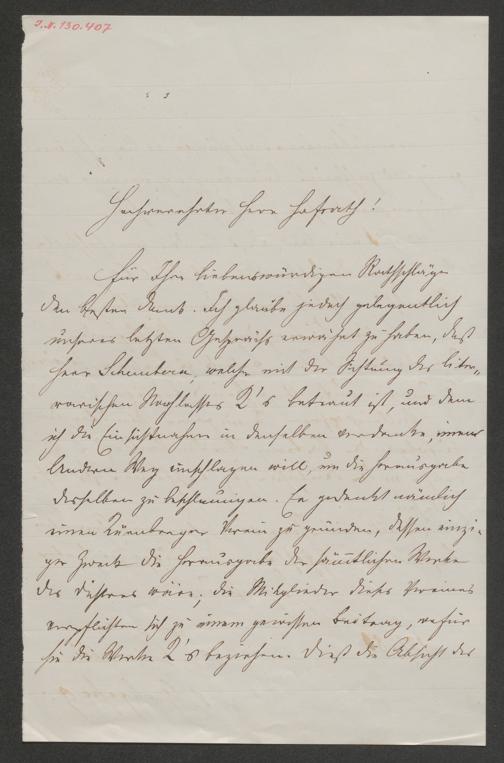 J.N. 130.407
Hochverehrter Herr Hofrath!
Für Ihre liebenswürdigen Rathschläge
den besten Dank. Ich glaube jedoch gelegentlich
unseres letzten Gesprächs erwähnt zu haben, daß
Herr Schembera, welcher mit der Sichtung des liter-
rarischen Nachlasses K's betraut ist, und dem
ich die Einsichtnahme in denselben verdanke, einen
Andern Weg einschlagen will, um die Herausgabe
desselben zu beschleunigen. Er gedenkt nämlich
einen Kürnberger Verein zu gründen, dessen einzi-
ger Zweck die Herausgabe der sämmtlichen Werke
des Dichters wäre; die Mitglieder dieses Vereines
verpflichten sich zu einem gewissen Beitrag, wofür
sie die Werke K's beziehen. Dieß die Absicht des